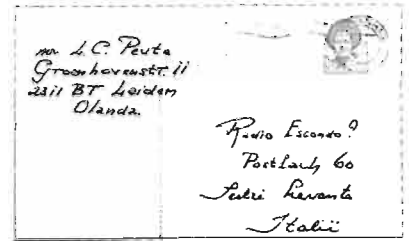 mr L.C. Peute
Groenhovenstr. 11
2311 BT Leiden
Olanda.
Radio Escondo?
Postfach 60
Sestri Levante
Italië